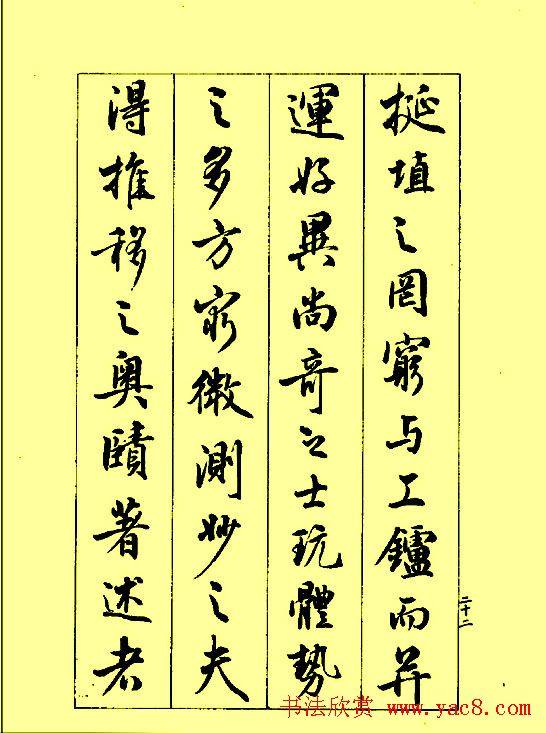 挻埴之罔窮与工鑪而并
運好異尚奇之士玩體勢
之多方窮微測妙之夫
得推移之奥賾著述者
二十二
书法欣赏 www.yac8.com